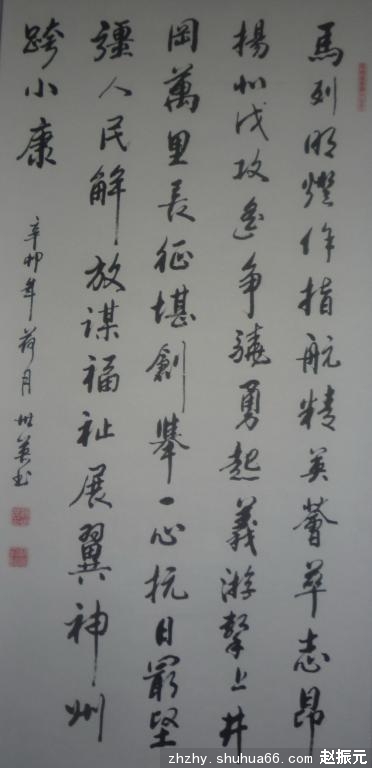 馬列明燈作指航精英薈萃志昂
揚北伐攻争驍勇起義游擊上井
岡萬里長征堪創舉一心抗日最堅
彊人民解放謀福祉展翼神州
跨小康
辛卯年荷月世英书
zhzhy.shuhua66.com 赵振元